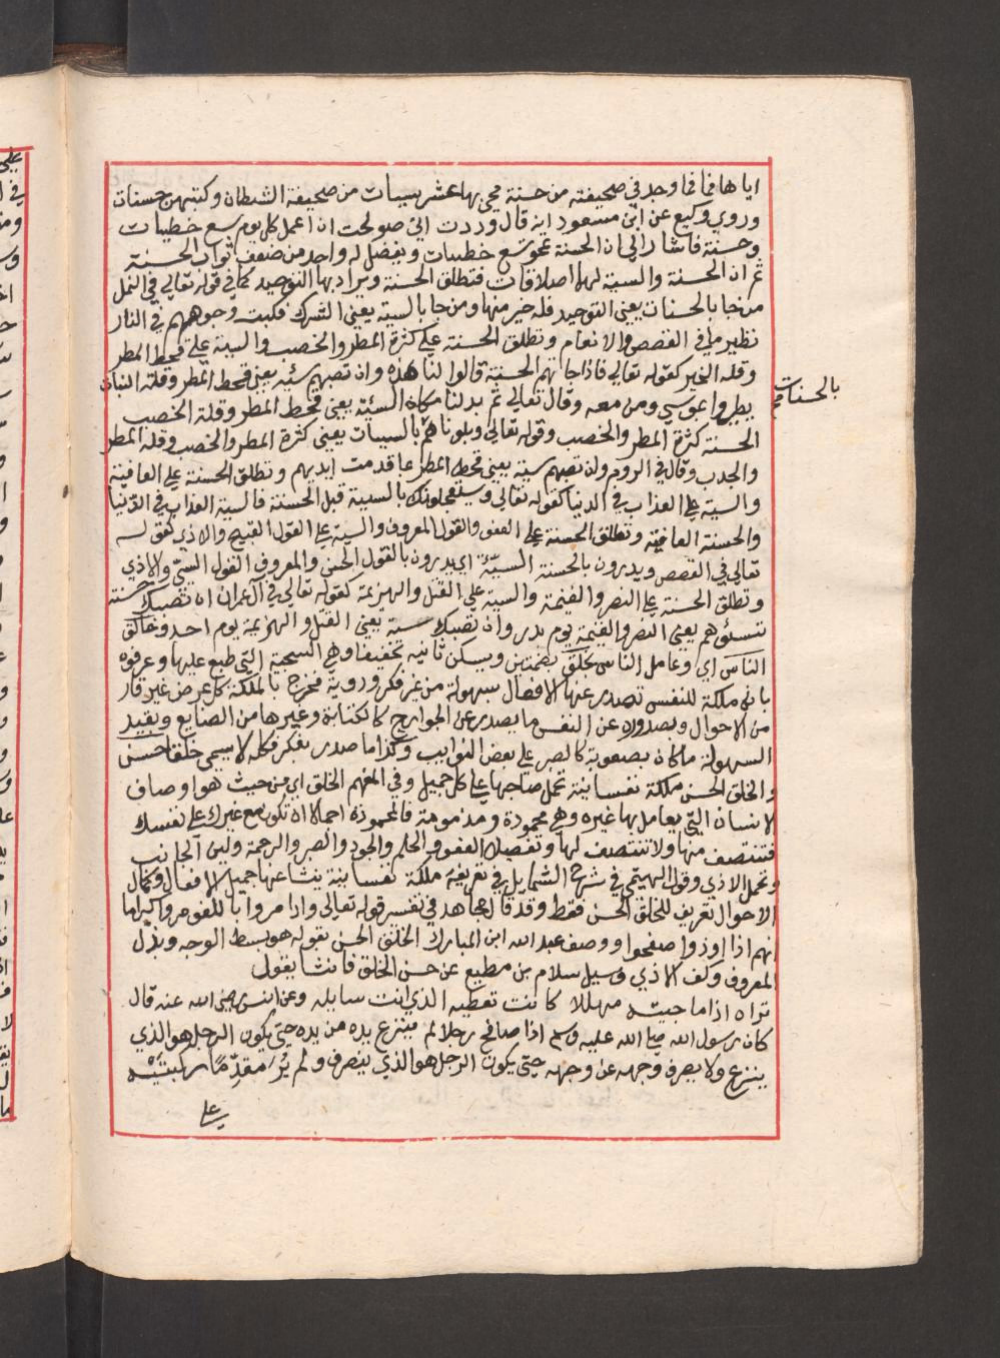 اياها فما وجد في صحيفته من حسنة محي بها عشر سيبات من صحيفة الشيطان وكتبهن حسنات
وروي وكيع عن ابن مسعود انه قال وددت اني صولحت ان اعمل كل يوم سبع خطيات
وحسنة فاشار الي ان الحسنة تمحو سبع خطيات ويفضل له واحد من ضعف ثواب الحسنة
ثم ان الحسنة والسية لهما اطلاقات فتطلق الحسنة ويراد بها التوحيد كما في قوله تعالي في النمل
من جا بالحسنات يعني التوحيد فله خير منها ومن جا بالسية يعني الشرك فكبت وجوههم في النار
نظير ما في القصص والانعام وتطلق الحسنة علي كثرة المطر والخصب والسية علي قحط المطر
وقلة الخير كقوله تعالي فاذا جاتهم الحسنة قالوا لنا هذه وان تصبهم سئيه يعني قحط المطر وقلة النبات
يطيروا بموسي ومن معه وقال تعالي ثم بدلنا مكان السئية يعني قحط المطر وقلة الخصب
الحسنة كثرة المطر والخصب وقوله تعالي وبلوناهم بالسيبات يعني كثرة المطر والخصب وقلة المطر
بالحسنات صح
والجدب وقال في الروم وان تصبهم سية يعني قحط المطر بما قدمت ايديهم وتطلق الحسنة علي العافية
والسية علي العذاب في الدنيا كقوله تعالي ويستعجلونك بالسيية قبل الحسنة فالسية العذاب في الدنيا
والحسنة العافية وتطلق الحسنة علي العفو والقول المعروف والسية علي القول القبيح والاذي كقوله
تعالي في القصص ويدرون بالحسنة السيئة اي يدرون بالقول الحسن والمعروف القول السيئ والاذي
وتطلق الحسنة علي النصر والغنيمة والسية علي القتل والهزيمة كقوله تعالي في آل عمران ان تصبك حسنة
تسؤهم يعني النصر والغنيمة يوم بدر وان تصبك سية يعني القتل والهزيمة يوم احد وخالق
الناس اي وعامل الناس بخلق بضمتين ويسكن ثانيه تخفيفا وهي السجية التي طبع عليها وعرفوه
بانه ملكة للنفس تصدر عنها الافعال بسهولة من غير فكر وروية فخرج بالملكة كل عرض غير قار
من الاحوال وبصدوره عن النفس ما يصدر عن الجوارح كالكتابة وغيرها من الصنايع وبقيد
السهولة ما كان بصعوبة كالصبر علي بعض النوايب وكذا ما صدر بفكر فكله لا يسمي خلقا حسن
والخلق الحسن ملكة نفسانية تحمل صاحبها علي كل جميل وفي المفهم الخلق اي من حيث هو اوصاف
الانسان التي يعامل بها غيره وهي محمودة ومذمومة فالمحمودة اجمالا ان تكون مع غيرك علي نفسك
فتنتصف منها ولا تنتصف لها وتفصيلا العفو والحلم والجود والصبر والرحمة ولين الجانب
وتحمل الاذي وقول الهيتمي في شرح الشمايل في تعريفه ملكة نفسانية ينشا عنها جميل الافعال وكمال
الاحوال تعريف للخلق الحسن فقط وقد قال مجاهد في تفسير قوله تعالي واذا مروا باللغو مروا كراما
انهم اذا اوذوا صفحوا ووصف عبد الله ابن المبارك الخلق الحسن بقوله هو بسط الوجه وبذل
المعروف وكف الاذي وسيل سلام بن مطيع عن حسن الخلق فانشا يقول
تراه اذا ما جيته مهللا كانت تعطيه الذي انت سايله وعن انس رضي الله عنه قال
كان رسول الله صلي الله عليه وسلم اذا صافح رجلا لم ينزع يده من يده حتي يكون الرجل هو الذي
ينزع ولا يصرف وجهه عن وجهه حتي يكون الرجل هو الذي يصرف ولم يُرَ مقدّمًا ركبتيه
علي